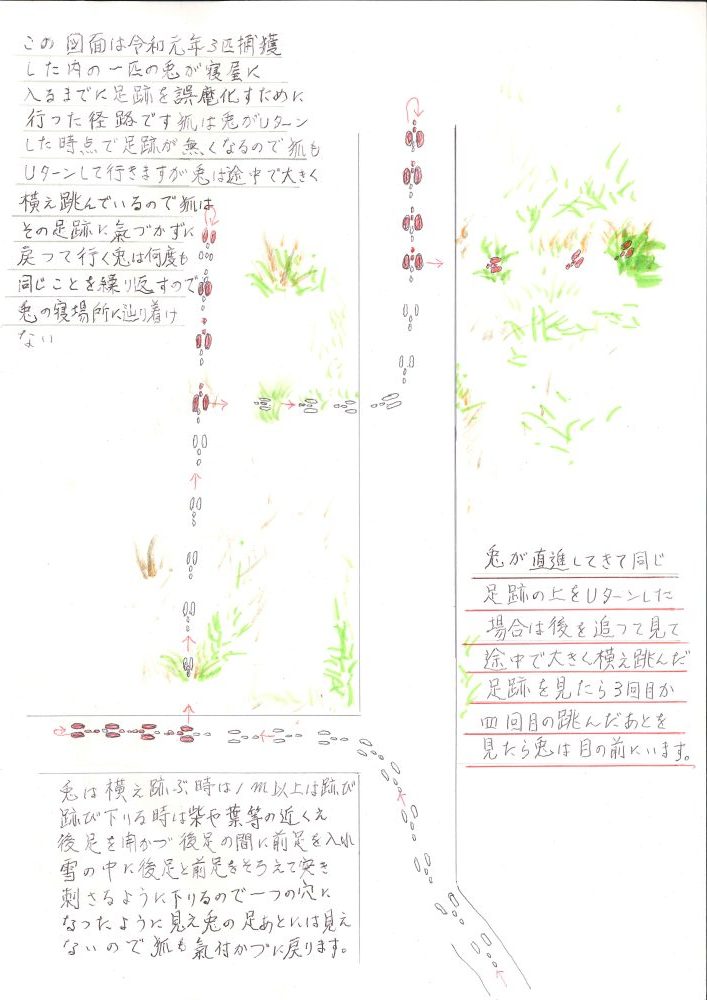 この図面は令和元年3匹捕獲
した内の一匹の兎が寝屋に
入るまでに足跡を誤魔化すために
行った径路です狐は兎がUターン
した時点で足跡が無くなるので狐も
Uターンして行きますが兎は途中で大きく
横え跳んでいるので狐は
その足跡に氣づかずに
戻って行く兎は何度も
同じことを繰り返すので
兎の寝場所に辿り着け
ない
兎が直進してきて同じ
足跡の上をUターンした
場合は後を追って見て
途中で大きく横え跳んだ
足跡を見たら3回目か
四回目の跳んだあとを
見たら兎は目の前にいます。
兎は横え跡ぶ時は1m以上は跡び
跡び下りる時は柴や葉等の近くえ
後足を開かづ後足の間に前足を入れ
雪の中に後足と前足をそろえて突き
刺さるように下りるので一つの穴に
なったように見え兎の足あとには見え
ないので狐も氣付かづに戻ります。